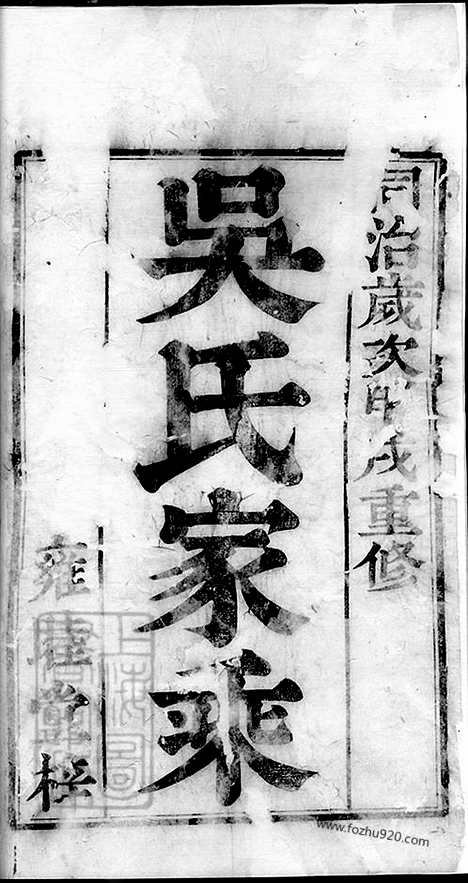 同治歲次甲戌重修
吳氏家乘
雍睦堂梓
www.fozhu920.com